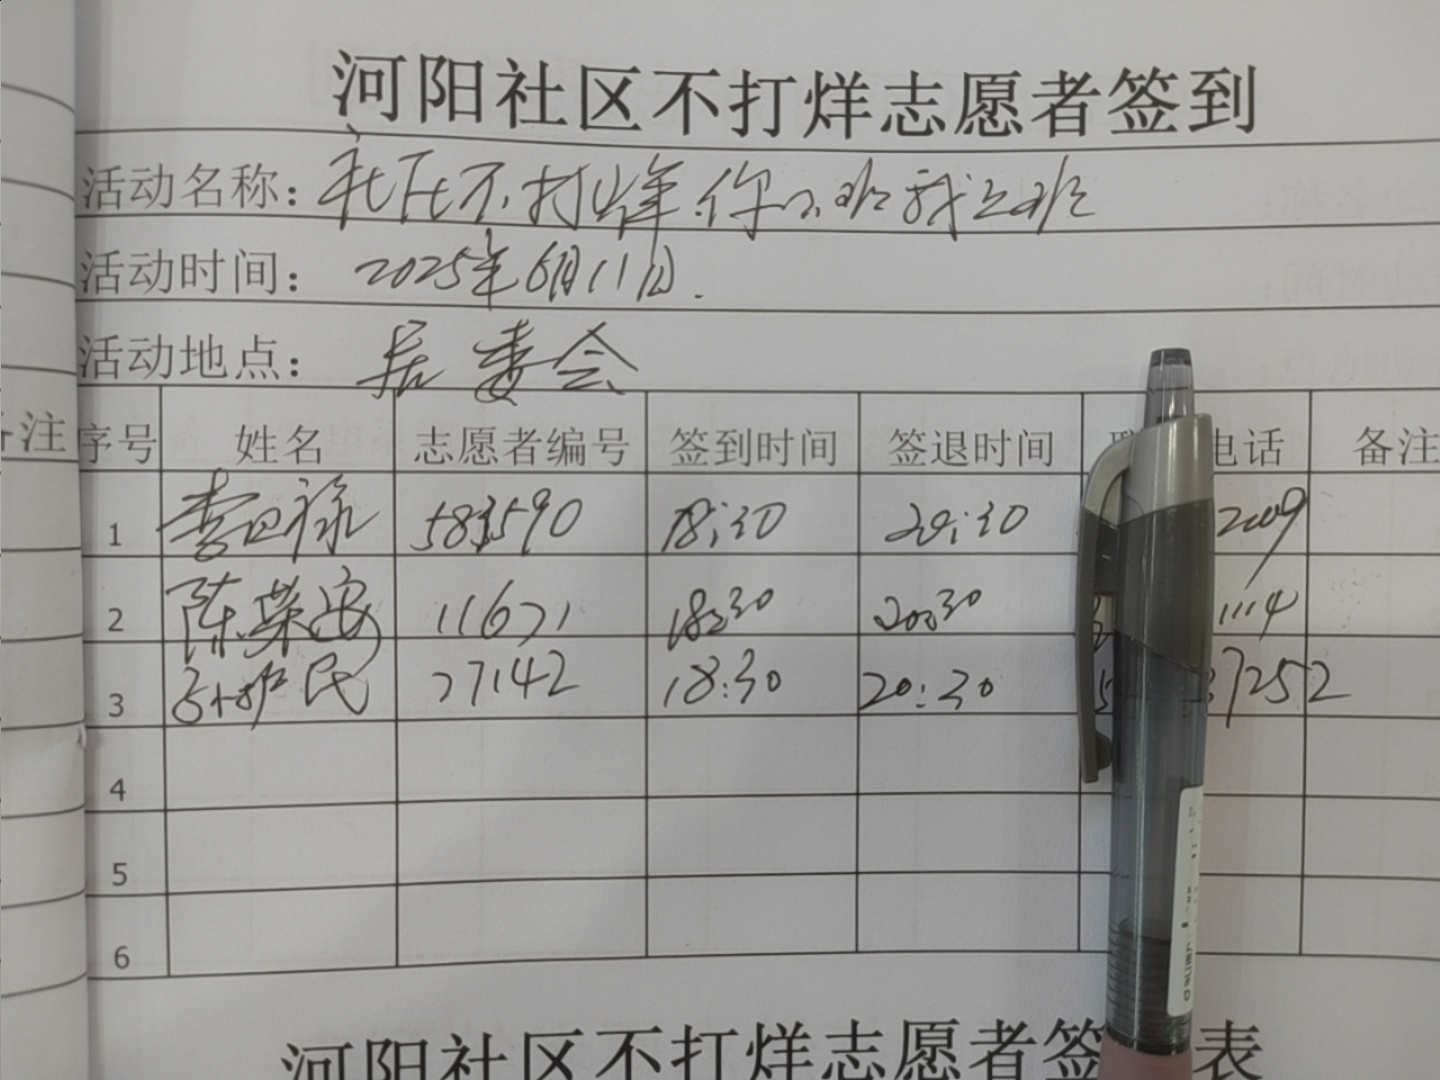 河阳社区不打烊志愿者签到
活动名称：社区不打烊.你下班我上班
活动时间：2025年6月11日.
活动地点：居委会
备注 序号 姓名 志愿者编号 签到时间 签退时间 电话 备注
1 583590 18:30 20:30 2009
2 陈荣安 11671 18:30 20:30 1114
3 民 27142 18:30 20:30 37252
4
5
6
河阳社区不打烊志愿者签 表